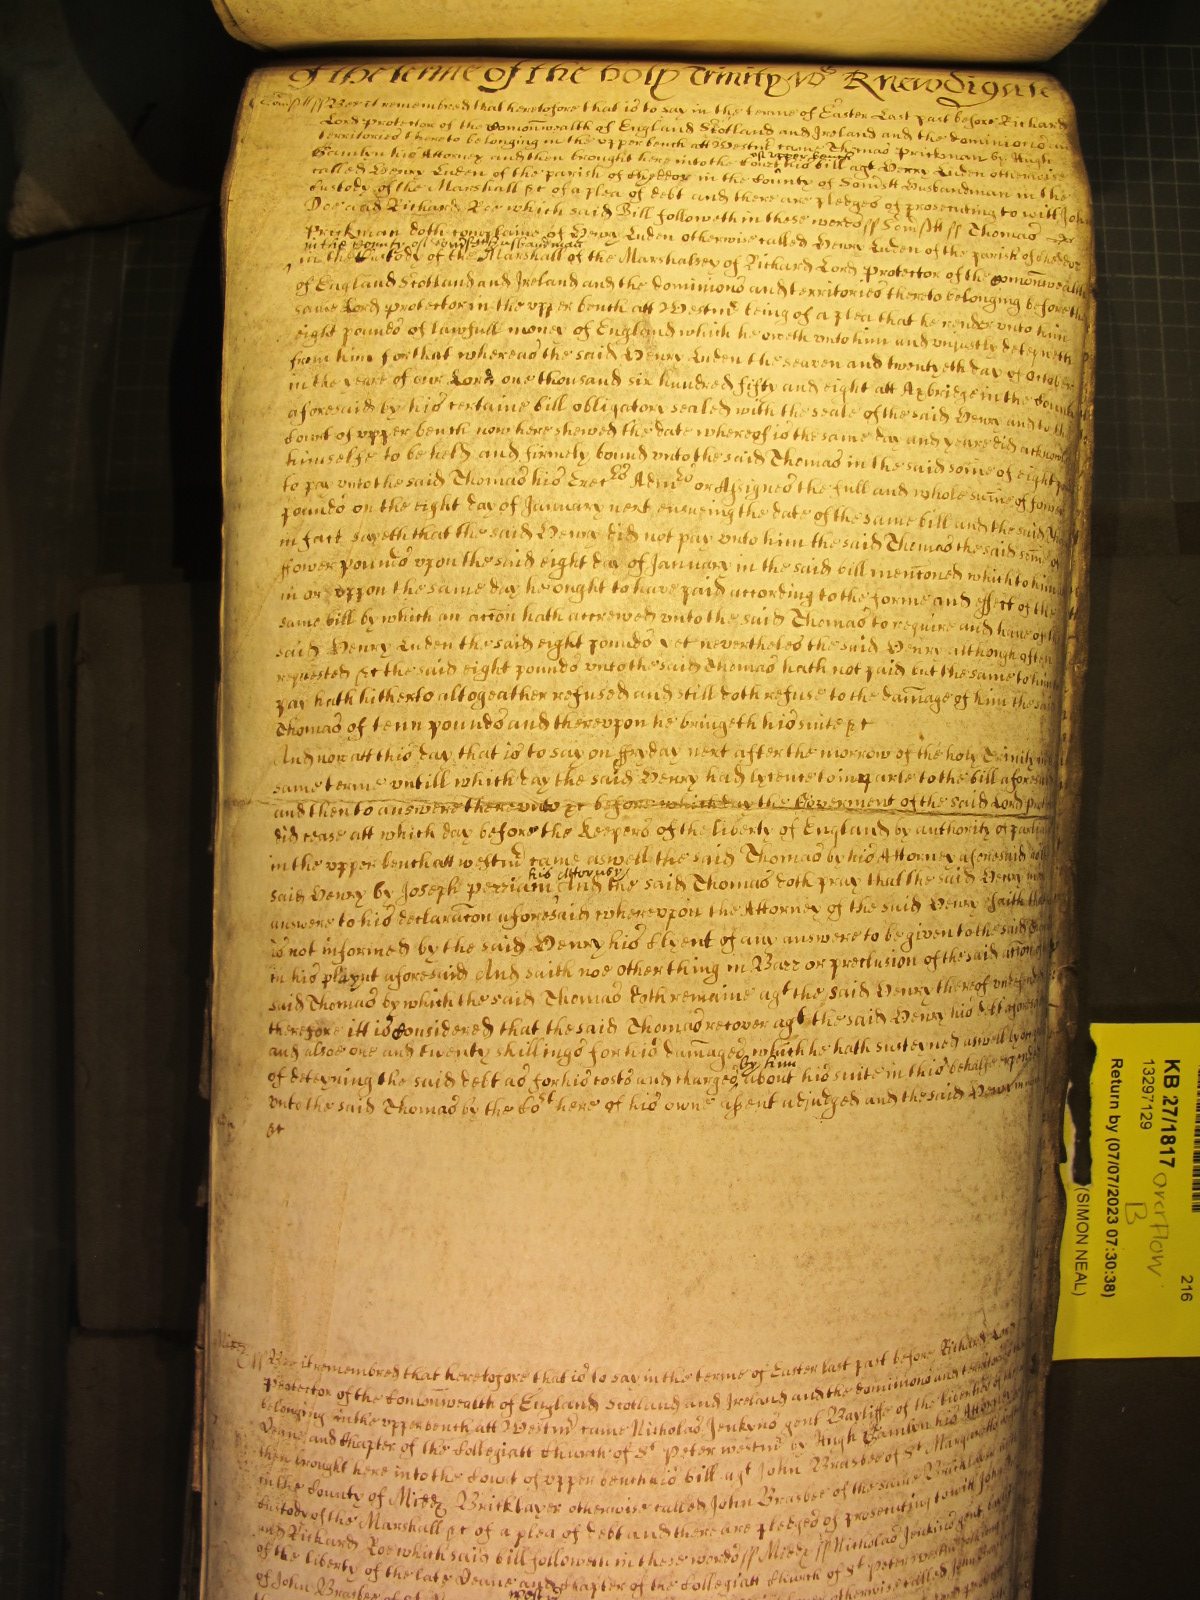 Of the terme of the holy Trinity Ro Rnewdigate
Somsett ss Bee it remembred that heretofore that is to say in the terme of Easter last past before Richard
Lord protector of the Comonwealth of England Scotland and Ireland and the dominions and
territories thereto belonging in the vpper bench att Westmr came Thomas Prickman by Hugh
Hamlyn his Attorney and then brought here into the Court of vpper bench his bill agt Henry Luden otherwise
called Henry Luden of the parish of Chedder in the County of Somstt Husbandman in the
Custody of the Marshall &c of a plea of debt and there are pledges of prosecuting to witt John
Doe and Richard Roe which said Bill followeth in these words ss Somstt ss Thomas
Prickman doth complaine of Henry Luden otherwise called Henry Luden of the parish of Chedder
in the County of Somstt Husbandman
in the Custody of the Marshall of the Marshalsey of Richard Lord Protector of the Comonwealth
of England Scotland and Ireland and the dominions and territories thereto belonging before the
same Lord protector in the vpper bench att Westmr being of a plea that he render vnto him
eight pounds of lawfull money of England which he oweth vnto him and vniustly deteyneth
from him for that whereas the said Henry Luden the seaven and twentyeth day of October
in the yeare of our Lord one thousand six hundred fifty and eight att Axbridge in the County
aforesaid by his certaine bill obligatory sealed with the seale of the said Henry and to the
Court of vpper bench now here shewed the date whereof is the same day and yeare did acknowl
himselfe to be held and firmely bound vnto the said Thomas in the said some of eight po
to pay vnto the said Thomas his Execrs Admrs or Assignes the full and whole sume of fower
pounds on the eight day of January next ensueing the date of the same bill and the said Tho
in fact sayeth that the said Henry did not pay vnto him the said Thomas the said sum of
ffower pounds vpon the said eight day of January in the said bill menconed which to him
in or vppon the same day he ought to have paid according to the forme and effect of the
same bill by which an accon hath accrewed vnto the said Thomas to require and have of the
said Henry Luden the said eight pounds yet neverthelesse the said Henry although often
requested &c the said eight pounds vnto the said Thomas hath not paid but the same to him
pay hath hitherto altogeather refused and still doth refuse to the damage of him the said
Thomas of tenn pounds and therevpon he bringeth his suite &c
And now att this day that is to say on ffryday next after the morrow of the holy Trinity in
same terme vntill which day the said Henry had lycence to imparle to the bill aforesaid
and then to answere therevnto &c before which day the Goverment of the said Lord prot
did cease att which day before the Keepers of the liberty of England by authority of parlia
in the vpper bench att westmr came aswell the said Thomas by his Attorney aforesaid as
said Henry by Joseph Perriam his Attorney And the said Thomas doth pray that the said Henry m
answere to his declaracon aforesaid wherevpon the Attorney of the said Henry saith that
is not informed by the said Henry his Clyent of any answere to be given to the said
in his playnt aforesaid And saith noe other thing in Barr or preclusion of the said accon of
said Thomas by which the said Thomas doth remaine agt the said Henry thereof vndefend
therefore itt is Considered that the said Thomas recover agt the said Henry his debt aforesaid
and alsoe one and twenty shillings for his damages which he hath susteyned aswell by
of deteyning the said debt as for his costs and charges by him about his suite in this behalfe expend
vnto the said Thomas by the Cort here of his owne assent adjudged and the said Henry in m
&c
Midd ss Bee it remembred that heretofore that is to say in the terme of Easter last past before Richard Lord
Protector of the Comonwealth of England Scotland and Ireland and the dominions and territories
belonging in the vpper bench att Westmr came Nicholas Jenkyns gent Bayliffe of the liberties of
Deane and Chapter of the Collegiatt Church of St Peter westmr by Hugh Hamlyn his Attorney
then brought here into the Court of vpper bench his bill agt John Brasbee of St Margaretts
in the County of Middx Bricklayer otherwise called John Brasbee of the same Bricklayer in
Custody of the Marshall &c of a plea of debt and there are pledges of prosecuting to witt John
and Richard Roe which said bill followeth in these words ss Middx ss Nicholas Jenkins gent
of the liberty of the late Deane and Chapter of the Collegiatt Church of St Peter westmr
of John Brasbee of St otherwise called John
KB 27/1817 overflow
B
13297129
Return by (07/07/2023 07:30:38)
(SIMON NEAL)
216